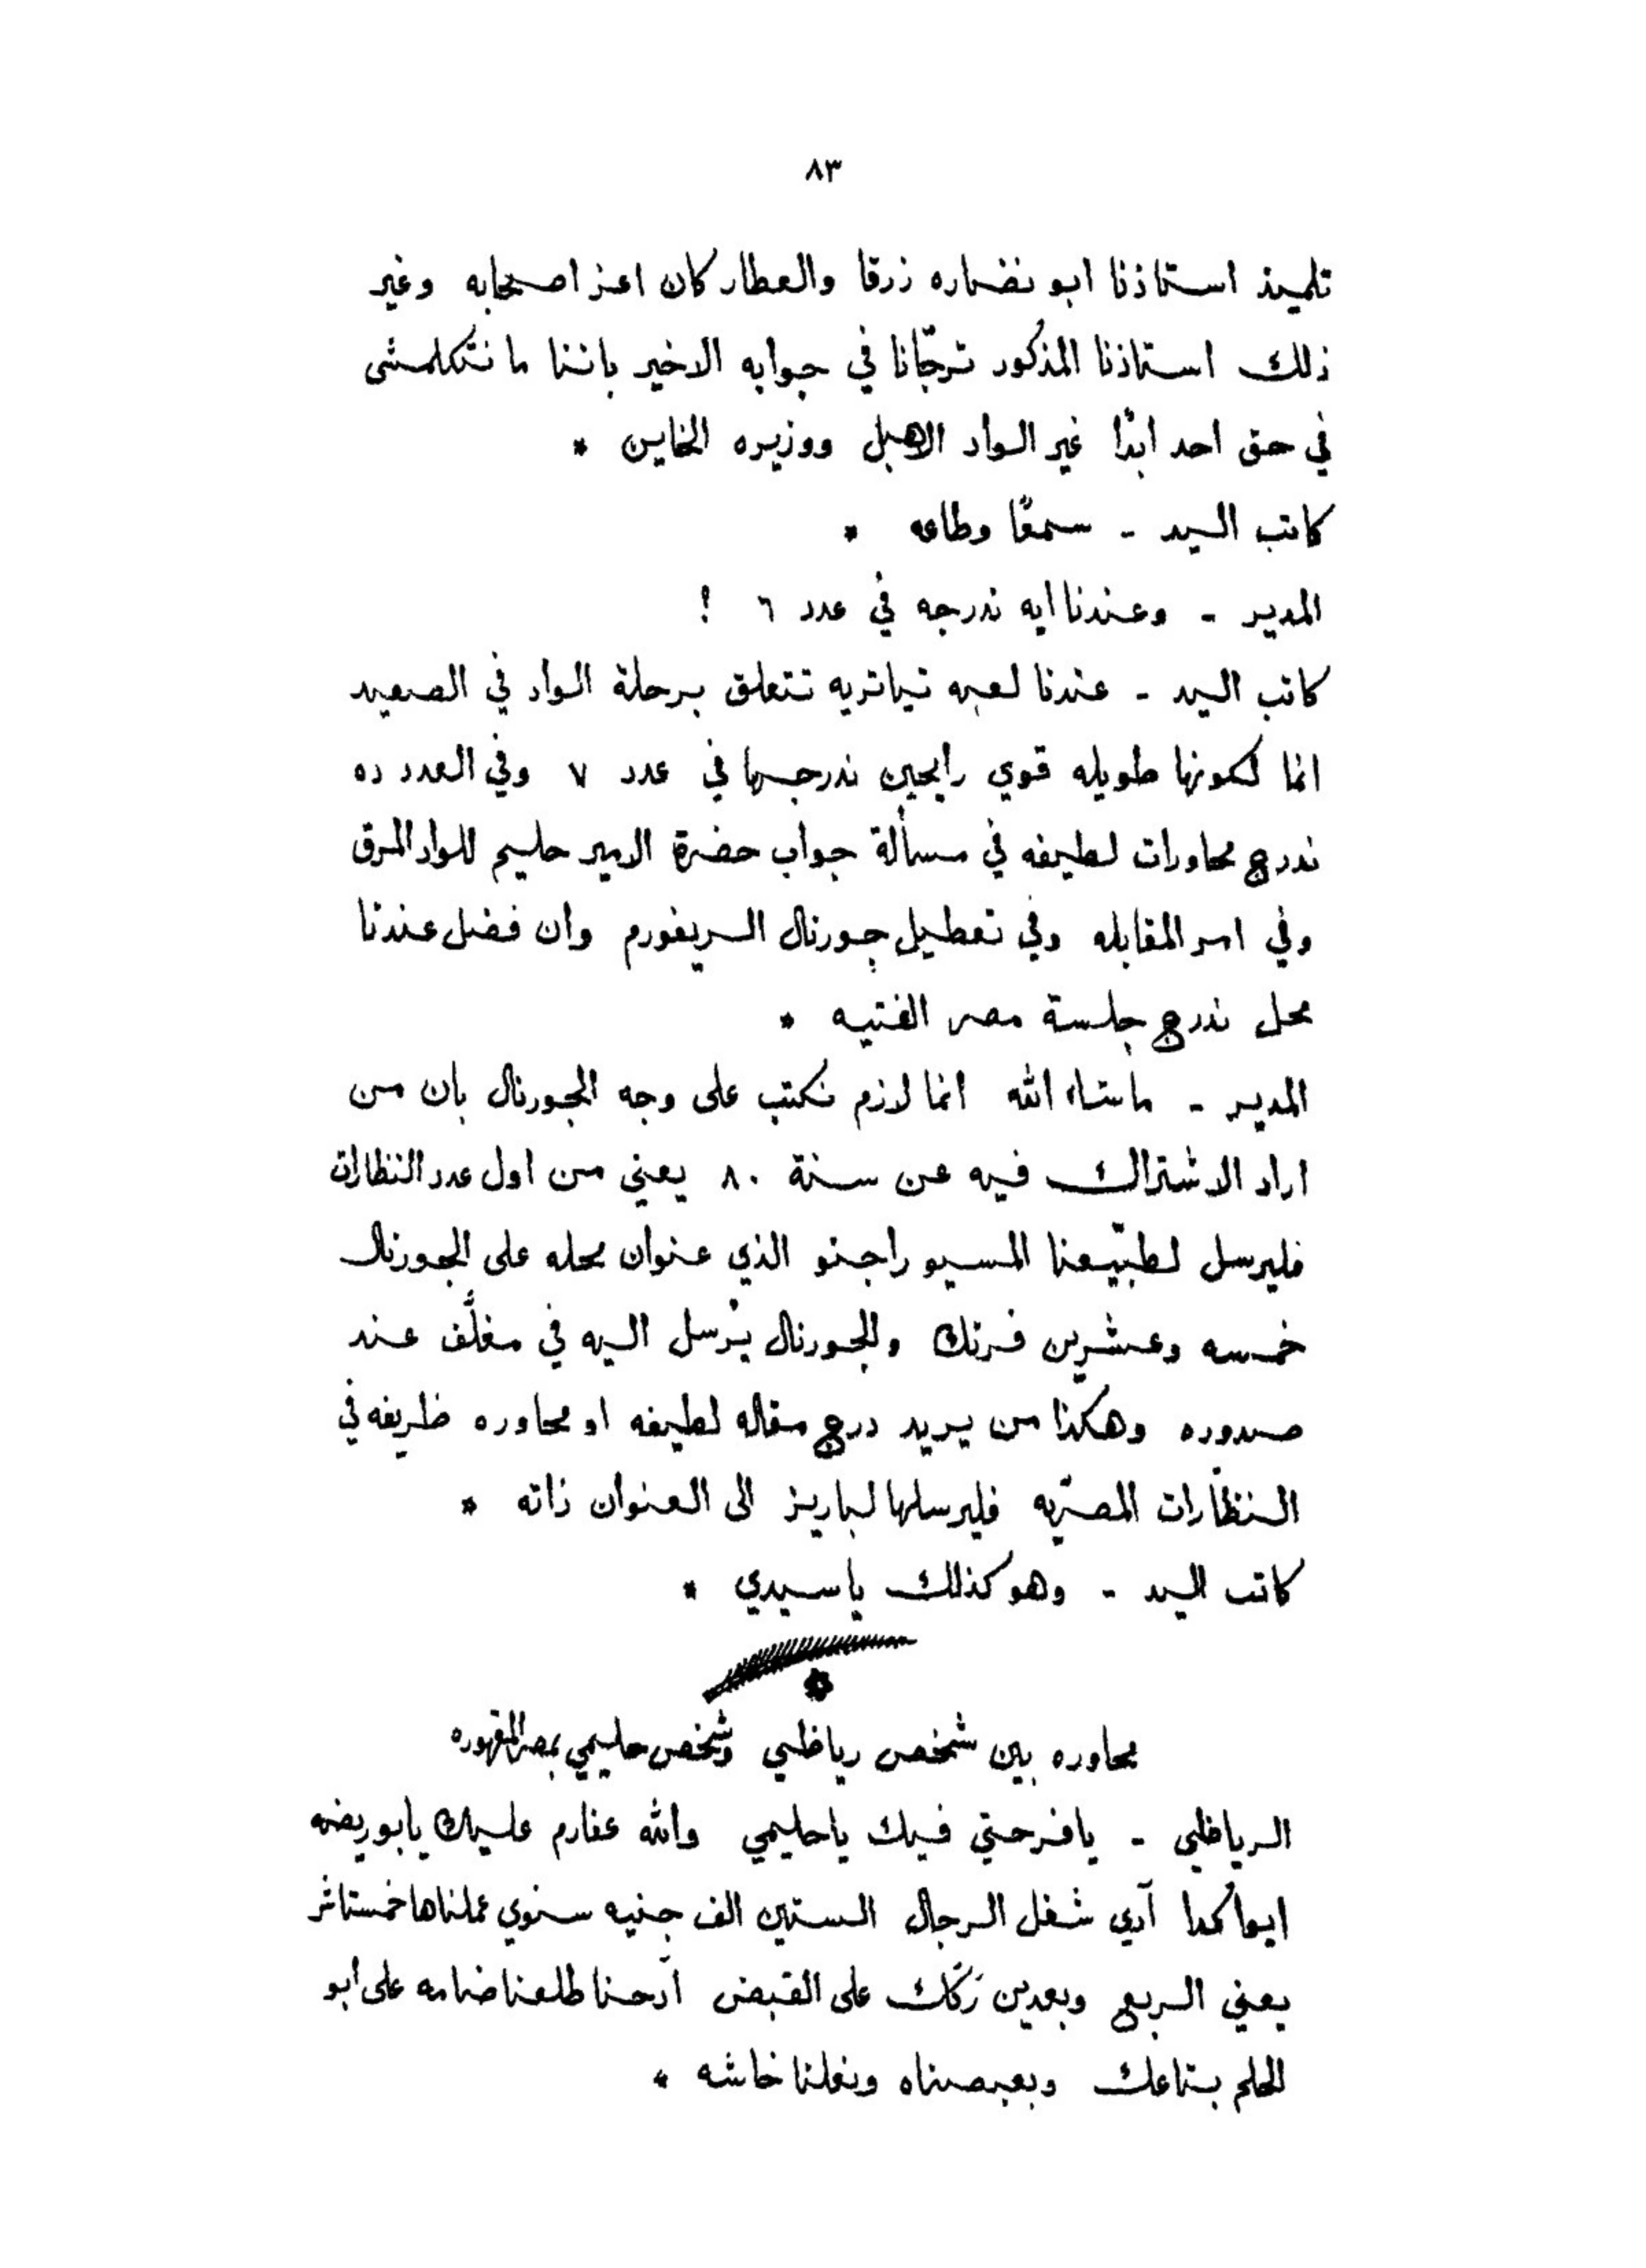 ٨٣
تلميذ استاذنا ابو نضاره زرقا والعطار كان اعز اصحابه وغير
ذلك استاذنا المذكور ترجّانا في جوابه الاخير باننا ما نتكلمشى
في حق احد ابدًا غير الواد الاهبل ووزيره الخاين *
كاتب اليد - سمعًا وطاعه *
المدير - وعندنا ايه ندرجه في عدد ٦ !
كاتب اليد - عندنا لعبه تياتريه تتعلق برحلة الواد في الصعيد
انما لكونها طويله قوي رايحين ندرجها في عدد ٧ وفي العدد ده
ندرج محاورات لطيفه في مسألة جواب حضرة الامير حليم للواد المرق
وفي امر المقابله وفي تعطيل جورنال الريفورم وان فضل عندنا
محل ندرج جلسة مصر الفتيه *
المدير - ماشاء الله انما لازم نكتب على وجه الجورنال بان من
اراد الاشتراك فيه عن سنة ٨٠ يعني من اول عدد النظارات
فليرسل لطبّيعنا المسيو راجنو الذي عنوان محله على الجورنال
خمسه وعشرين فرنك والجورنال يُرسل اليه في مغلَّف عند
صدوره وهكذا من يريد درج مقاله لطيفه او محاوره ظريفه في
النظّارات المصريّه فليرسلها لباريز الى العنوان ذاته *
كاتب اليد - وهو كذلك ياسيدي *
محاوره بين شخص رياظي وشخص حليمي بمصر المقهوره
الرياظي - يافرحتي فيك ياحليمي والله عفارم عليك يابو ريضه
ايوا كدا آدي شغل الرجال الستين الف جنيه سنوي عملناها خمستاشر
يعني الربع وبعدين رَكّك على القبض آدحنا طلعنا ضامه على ابو
الحلم بتاعك وبعبصناه ونغلنا خاشه *